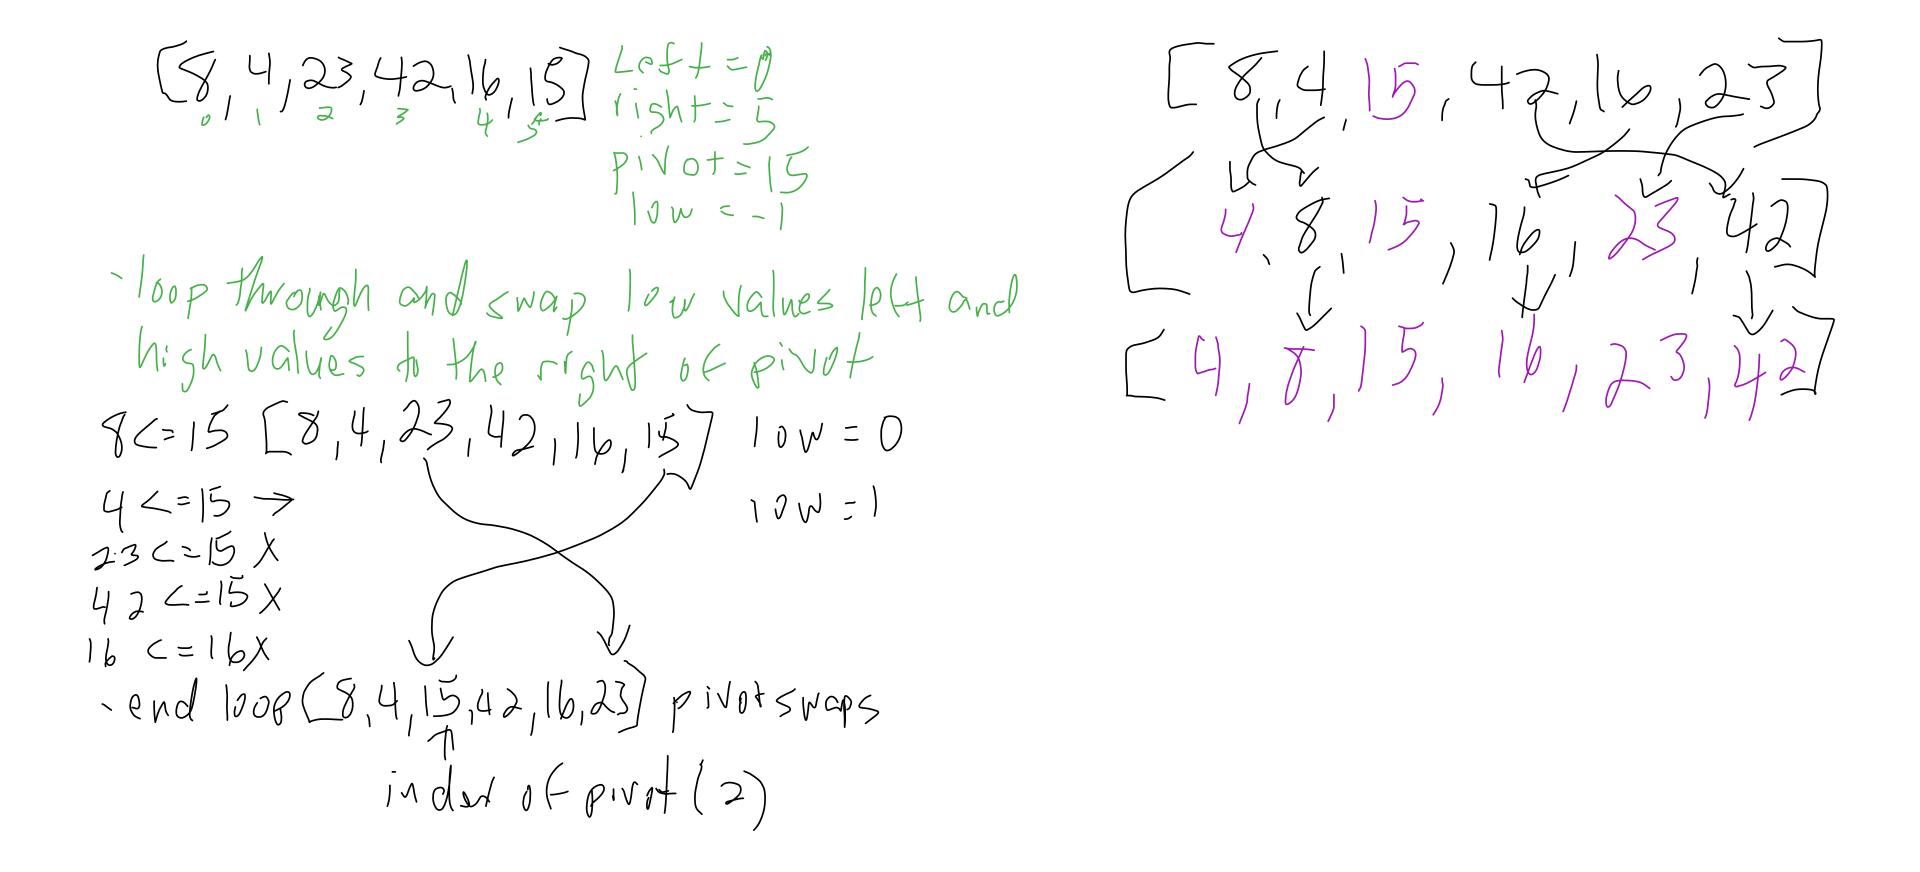 [8, 4, 23, 42, 16, 15]
0 1 2 3 4 5
Left = 0
right = 5
pivot = 15
low = -1
- loop through and swap low values left and
high values to the right of pivot
8 <= 15 [8, 4, 23, 42, 16, 15] low = 0
4 <= 15 → low = 1
23 <= 15 X
42 <= 15 X
16 <= 16 X
- end loop [8, 4, 15, 42, 16, 23] pivot swaps
index of pivot (2)
[8, 4, 15, 42, 16, 23]
[4, 8, 15, 16, 23, 42]
[4, 8, 15, 16, 23, 42]